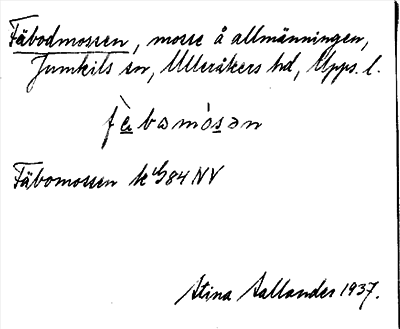 Fäbodmossen, mosse å allmänningen,
Jumkils sn, Ulleråkers hd, Upps. l.
fàbamósən
Fäbomossen k 84 NV
Stina Sallander 1937.